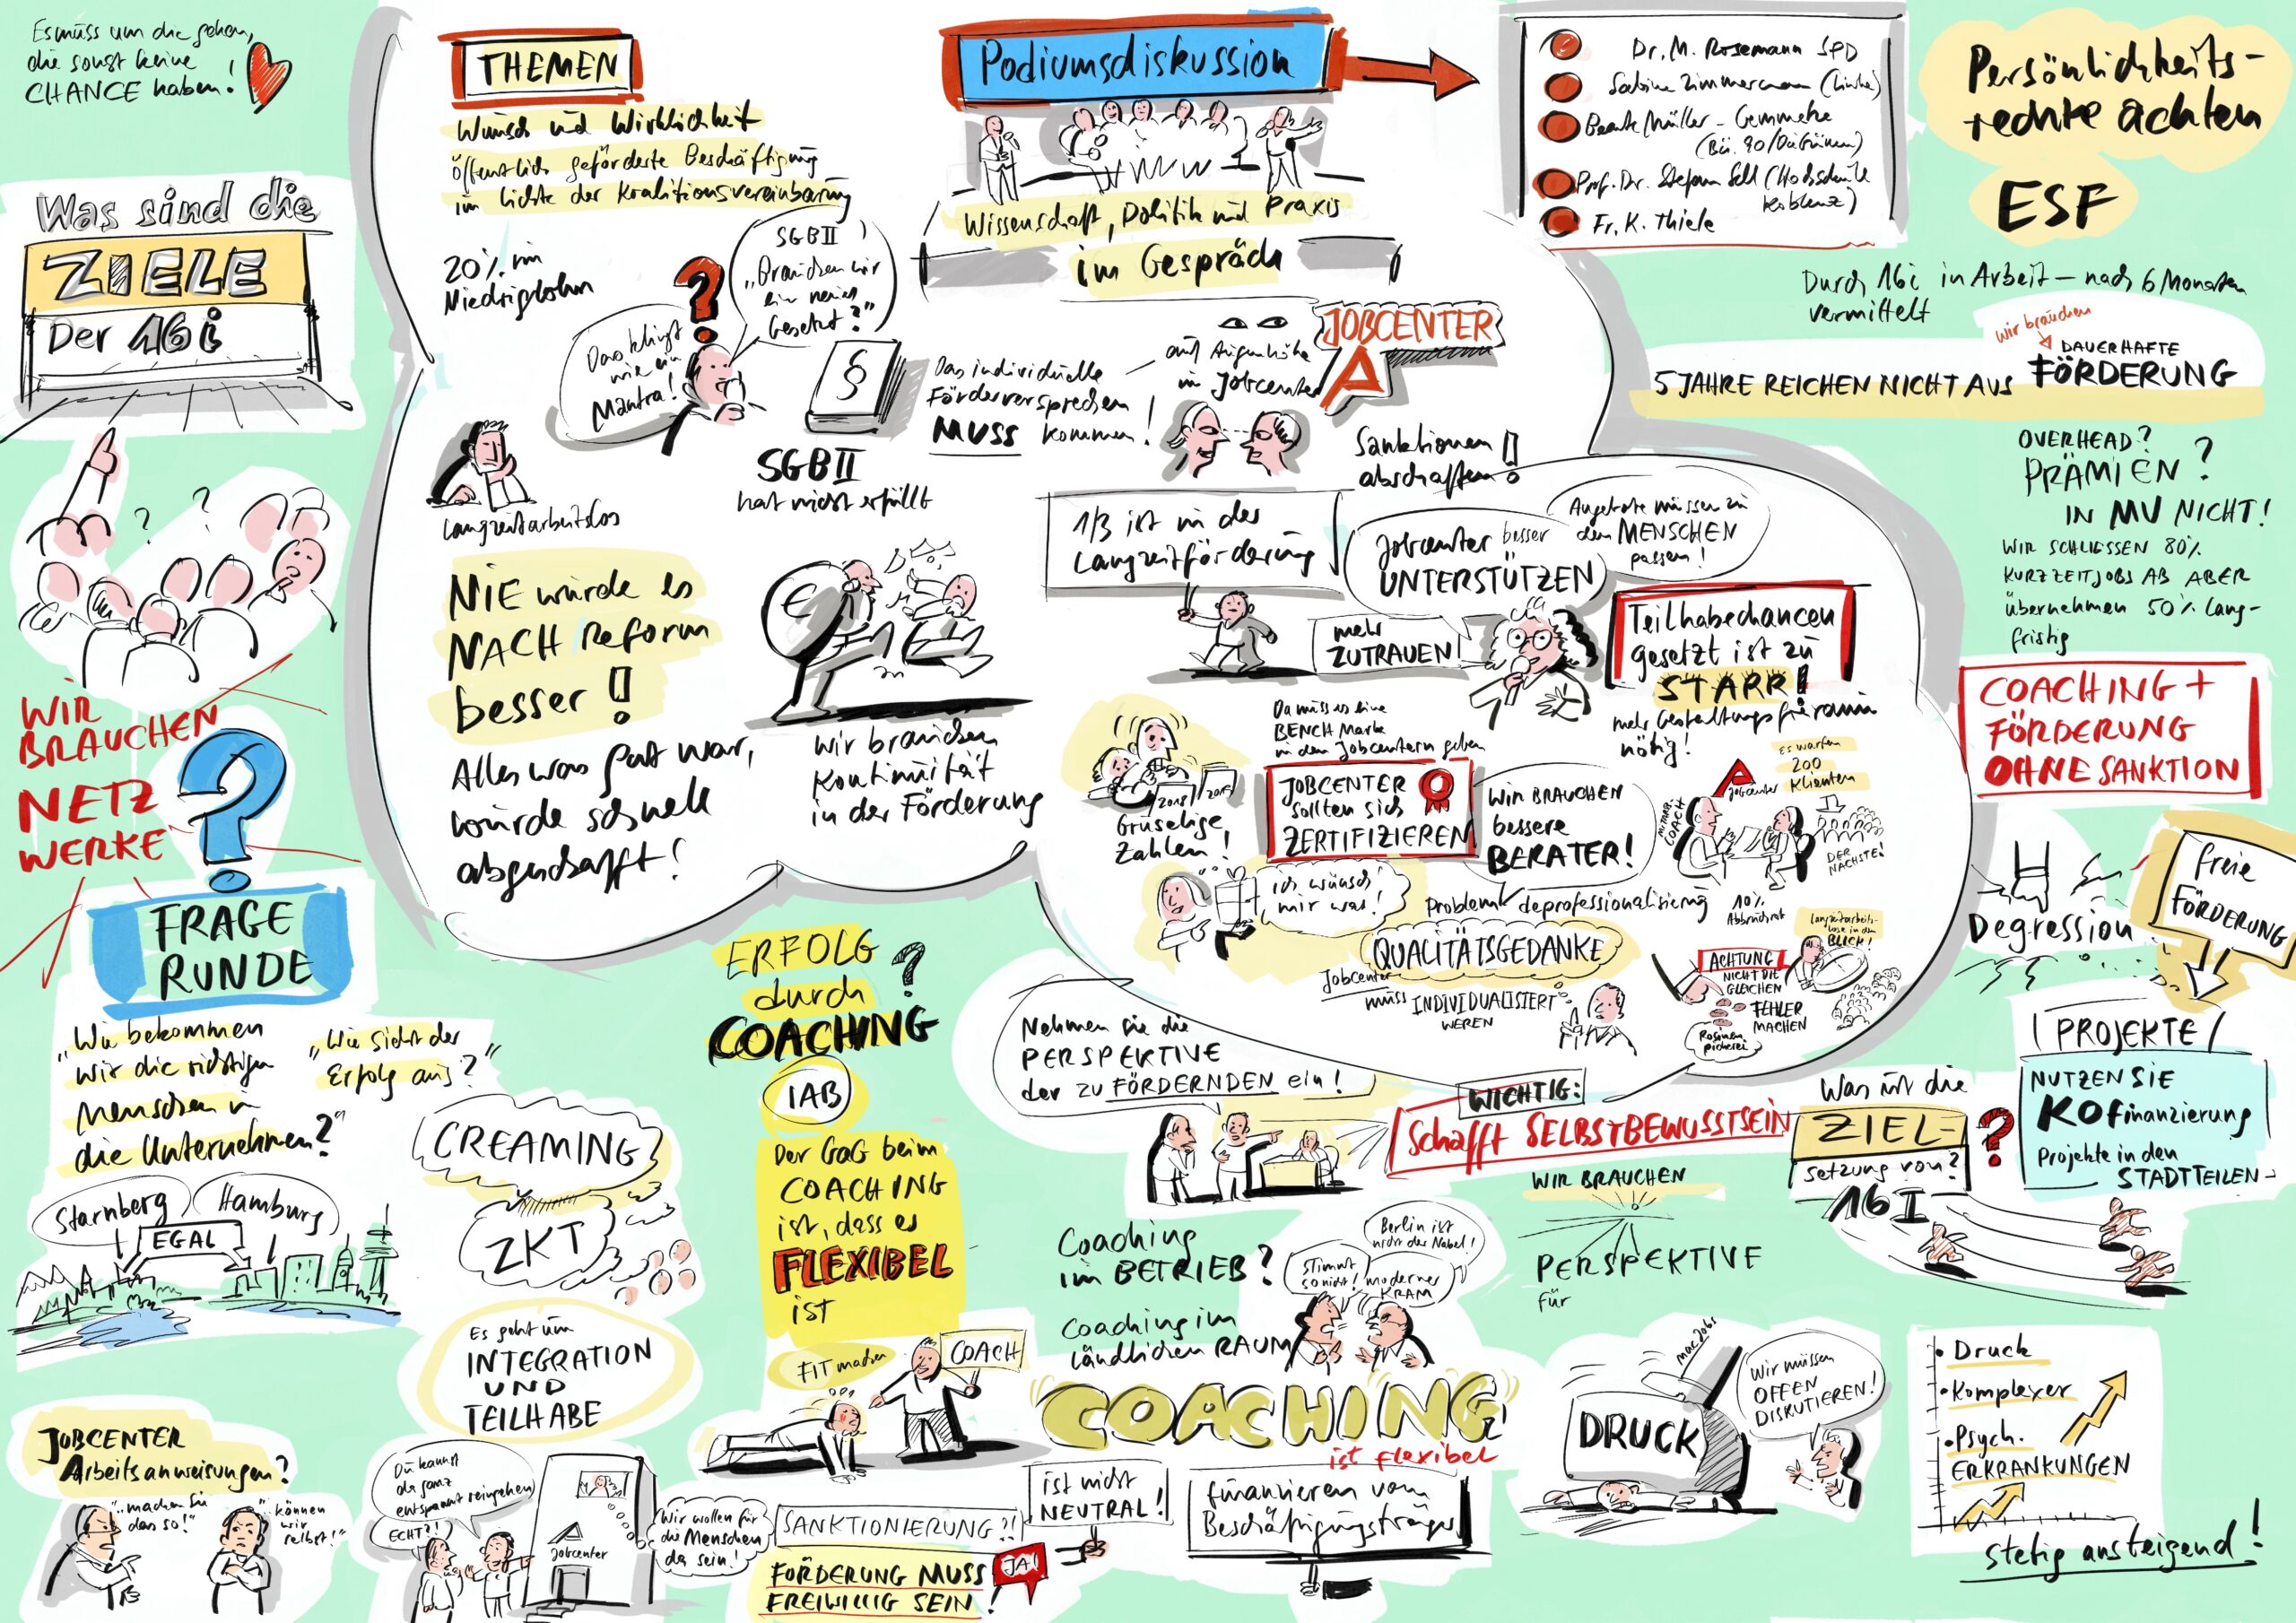 Es muss um die gehen,
die sonst keine
CHANCE haben!
Was sind die
ZIELE
Der 16i
WIR
BRAUCHEN
NETZ
WERKE
FRAGE
RUNDE
"Wie bekommen
wir die richtigen
Menschen in
die Unternehmen?"
"Wie sieht der
Erfolg aus?"
Starnberg
Hamburg
EGAL
CREAMING
ZKT
Es geht um
INTEGRATION
UND
TEILHABE
JOBCENTER
Arbeitsanweisungen?
"machen Sie
das so!"
"können
wir
selbst!"
Du kannst
da ganz
entspannt reingehen
ECHT?!
Jobcenter
Wir wollen für
die Menschen
da sein!
THEMEN
Wunsch und Wirklichkeit
öffentlich geförderte Beschäftigung
im Lichte der Koalitionsvereinbarung
20% im
Niedriglohn
Das klingt
wie ein
Mantra!
SGBII
"Brauchen wir
ein neues
Gesetz?"
§
SGBII
hat nicht erfüllt
Langzeitarbeitslos
NIE wurde es
NACH Reform
besser!
Alles was gut war,
wurde schnell
abgeschafft!
€
Wir brauchen
Kontinuität
in der Förderung
Podiumsdiskussion
Wissenschaft, Politik und Praxis
im Gespräch
Dr. M. Rosemann SPD
Sabine Zimmermann (Linke)
Beate Müller-Gemmeke
(Bü. 90/Die Grünen)
Prof. Dr. Stefan Sell (Hochschule
Koblenz)
Fr. K. Thiele
Das individuelle
Förderversprechen
MUSS kommen!
auf Augenhöhe
im Jobcenter
JOBCENTER
Sanktionen
abschaffen!
1/3 ist in der
Langzeitförderung
Jobcenter besser
UNTERSTÜTZEN
Angebote müssen zu
den MENSCHEN
passen!
mehr
ZUTRAUEN!
Teilhabechancen
gesetzt ist zu
STARR!
mehr Gestaltungsfreiraum
nötig!
Da muss es eine
BENCH Mark
in den Jobcentern geben
JOBCENTER
sollten sich
ZERTIFIZIEREN
Gruselige
Zahlen!
WIR BRAUCHEN
bessere
BERATER!
Es warten
200
Klienten
Jobcenter
COACH
DER
NÄCHSTE!
10%
Abbruchrat
ich wünsch
mir was!
Problem deprofessionalisierung
QUALITÄTSGEDANKE
Jobcenter
muss INDIVIDUALISIERT
WEREN
Langzeitarbeits-
lose in den
BLICK!
ACHTUNG
NICHT DIE
GLEICHEN
FEHLER
MACHEN
Rosinen
pickerei
Nehmen Sie die
PERSPEKTIVE
der zu FÖRDERNDEN ein!
WICHTIG:
Schafft SELBSTBEWUSSTSEIN
WIR BRAUCHEN
PERSPEKTIVE
für
ERFOLG
durch
COACHING
?
IAB
Der GaG beim
COACHING
ist, dass es
FLEXIBEL
ist
FIT machen
COACH
SANKTIONIERUNG?!
FÖRDERUNG MUSS
FREIWILLIG SEIN!
JA!
Coaching
im BETRIEB?
Coaching im
ländlichen RAUM
Berlin ist
nicht der Nabel!
Stimmt
so nicht!
moderner
KRAM
COACHING
ist flexibel
ist nicht
NEUTRAL!
finanzieren vom
Beschäftigungsträger
DRUCK
Wir müssen
OFFEN
DISKUTIEREN!
• Druck
• Komplexer
• Psych.
ERKRANKUNGEN
stetig ansteigend!
Persönlichkeits-
rechte achten
ESF
Durch 16i in Arbeit – nach 6 Monaten
vermittelt
wir brauchen
DAUERHAFTE
5 JAHRE REICHEN NICHT AUS FÖRDERUNG
OVERHEAD?
PRÄMIEN?
IN MV NICHT!
WIR SCHLIESSEN 80%
KURZZEITJOBS AB ABER
übernehmen 50% Lang-
fristig
COACHING +
FÖRDERUNG
OHNE SANKTION
Degression
freie
FÖRDERUNG
PROJEKTE
NUTZEN SIE
KOfinanzierung
Projekte in den
STADTTEILEN
Was ist die
ZIEL-
setzung von?
16I